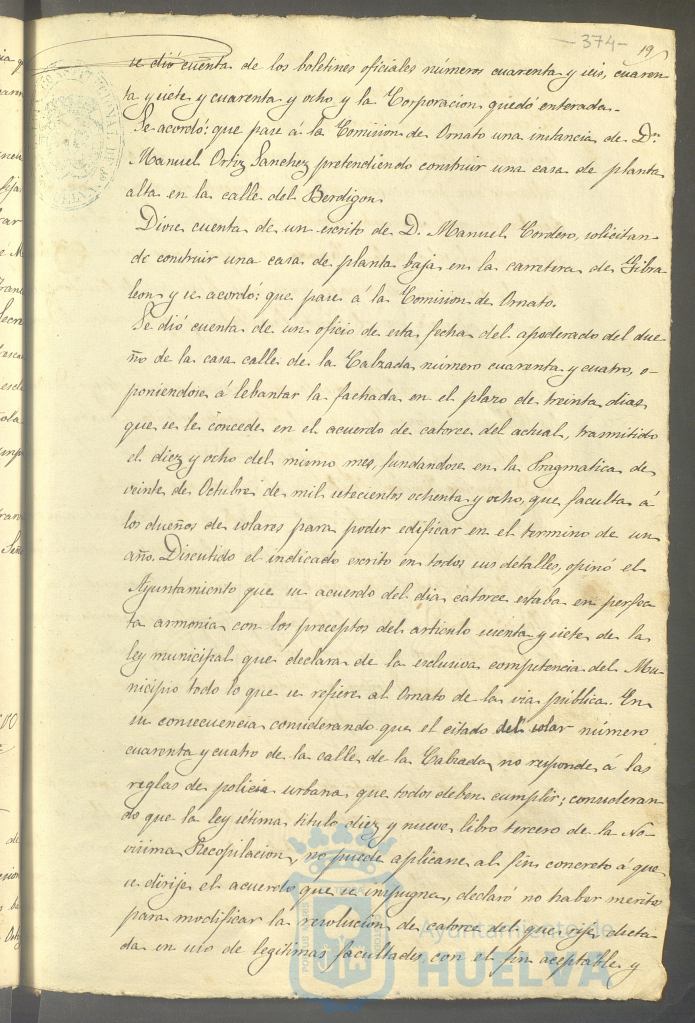 -374-
19
se dió cuenta de los boletines oficiales números cuarenta y seis, cuaren
ta y siete y cuarenta y ocho, y la Corporacion quedó enterada.
Se acordó: que pase á la Comision de Ornato una instancia de Dn.
Manuel Ortiz Sanchez pretendiendo construir una casa de planta
alta en la calle del Berdigon.
Diose cuenta de un escrito de D. Manuel Cordero, solicitan
do construir una casa de planta baja en la carretera de Gibra
leon y se acordó: que pase á la Comision de Ornato.
Se dió cuenta de un oficio de esta fecha del apoderado del due
ño de la casa calle de la Calzada número cuarenta y cuatro, o
poniendose á lebantar la fachada en el plazo de treinta dias
que se le concede en el acuerdo de catorce del actual, trasmitido
el diez y ocho del mismo mes, fundandose en la Pragmatica de
veinte de Octubre de mil setecientos ochenta y ocho, que faculta á
los dueños de solares para poder edificar en el termino de un
año. Discutido el indicado escrito en todos sus detalles, opinó el
Ayuntamiento que su acuerdo del dia catorce estaba en perfec
ta armonia con los preceptos del articulo setenta y siete de la
ley municipal que declara de la esclusiva competencia del Mu
nicipio todo lo que se refiere al Ornato de la via pública. En
su consecuencia considerando que el estado del solar número
cuarenta y cuatro de la calle de la Calzada, no responde á las
reglas de policia urbana que todos deben cumplir; consideran
do que la ley sétima, titulo diez y nueve, libro tercero de la No
visima Recopilacion, no puede aplicarse al fin concreto á que
se dirije el acuerdo que se impugna, declaró no haber merito
para modificar la resolucion de catorce del que rije, dicta
da en uso de legitimas facultades con el fin aceptable y
Ayuntamiento de
HUELVA